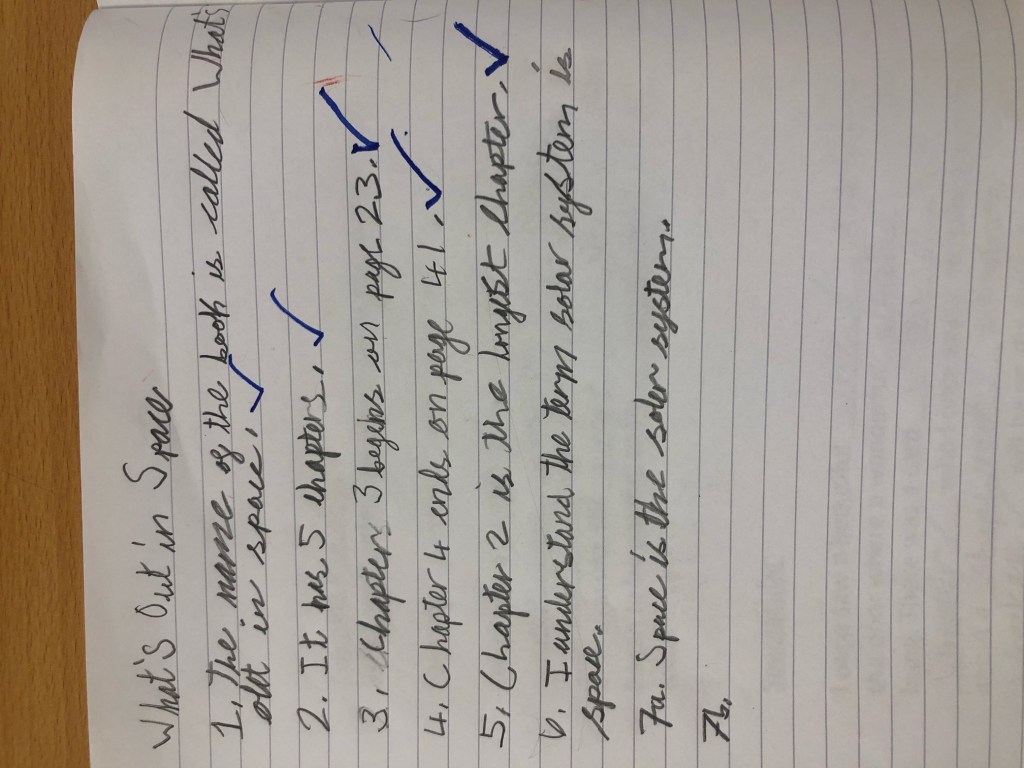 What's Out in Space
1. The name of the book is called What's
out in space.
2. It has 5 chapters.
3. Chapter 3 begins on page 23.
4. Chapter 4 ends on page 41.
5. Chapter 2 is the longest Chapter.
6. I understand the term solar system is
space.
7a. Space is the solar system.
7b.